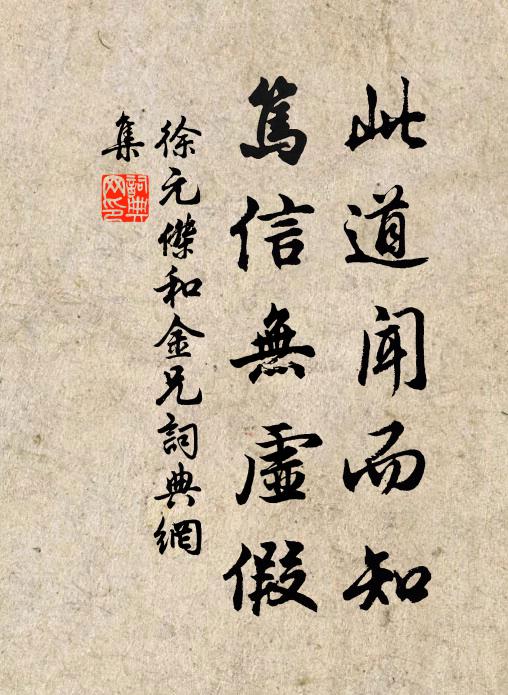 此道闻而知
篤信無虛假
徐元傑和金兄詞典網
集
詞典
网印